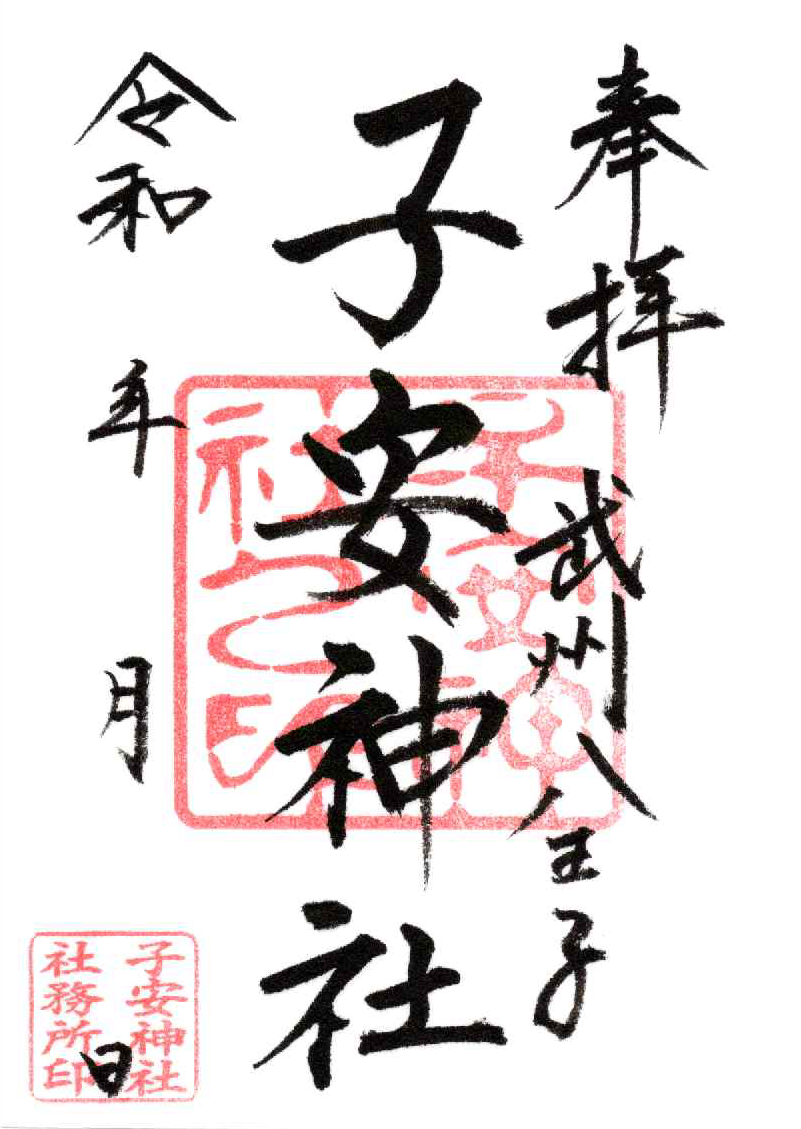 奉拝 武州八王子
子安神社
令和 年 月 日
子安神社之印
子安神社
社務所印